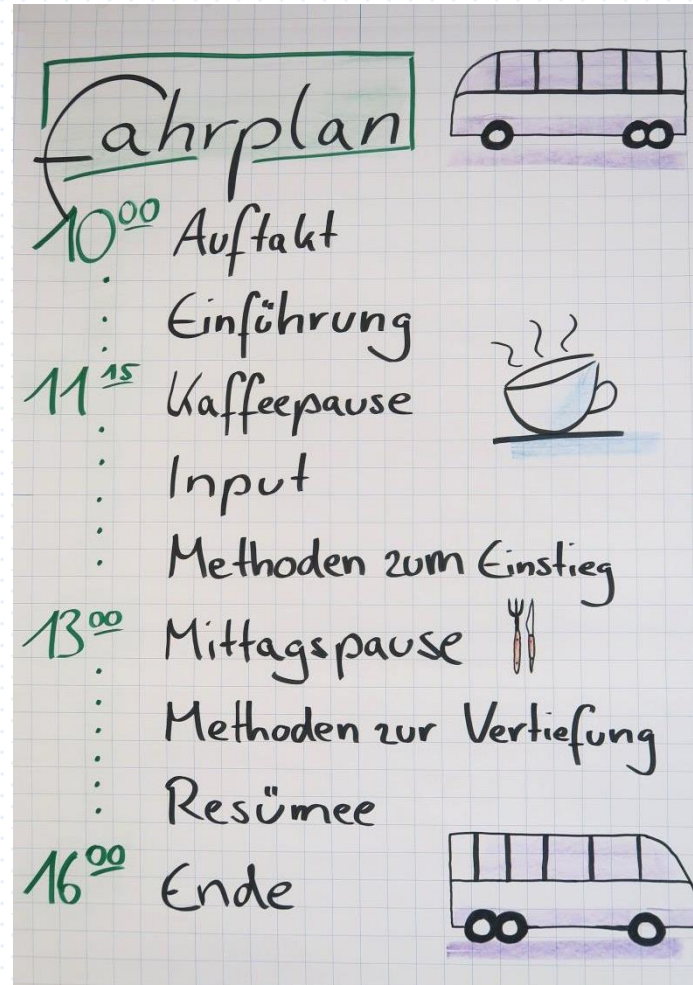 Fahrplan
10⁰⁰ Auftakt
Einführung
11¹⁵ Kaffeepause
Input
Methoden zum Einstieg
13⁰⁰ Mittagspause
Methoden zur Vertiefung
Resümee
16⁰⁰ Ende